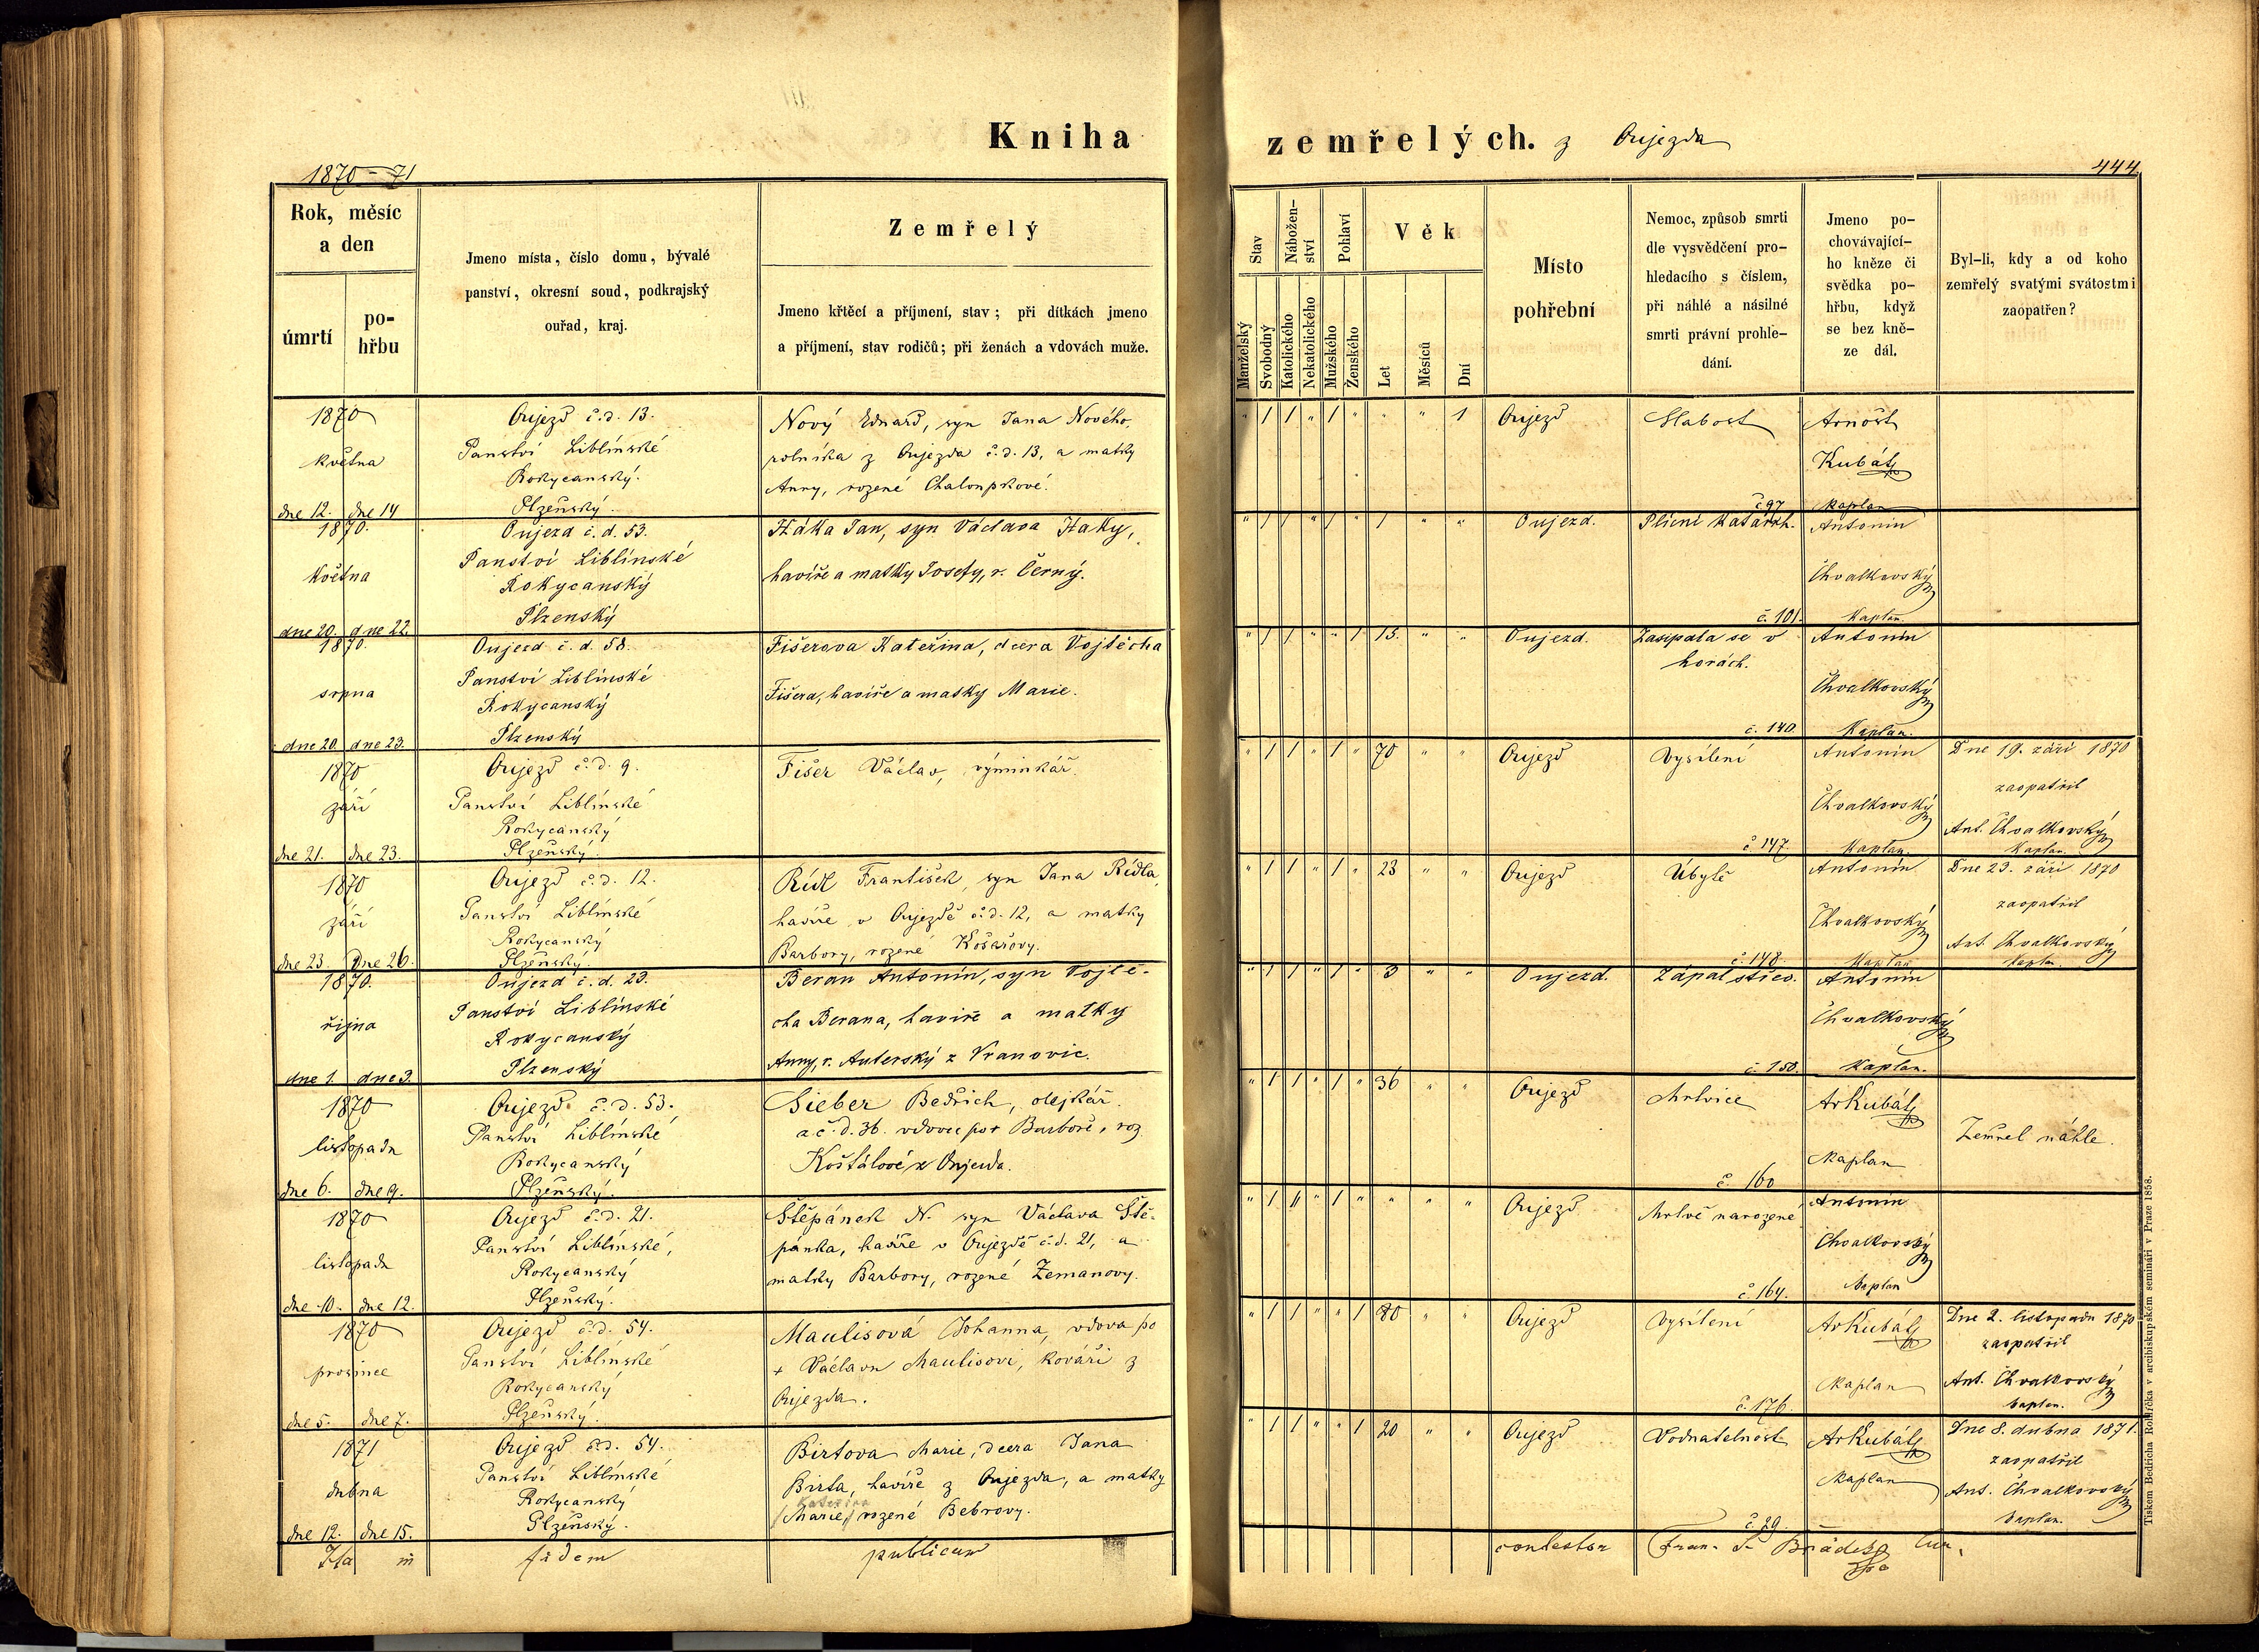 Kniha
zemřelých. z Oujezda
1870-71
444
Rok, měsíc
a den
úmrtí
po-
hřbu
Jmeno místa, číslo domu, bývalé
panství, okresní soud, podkrajský
ouřad, kraj.
Zemřelý
Jmeno křtěcí a příjmení, stav; při dítkách jmeno
a příjmení, stav rodičů; při ženách a vdovách muže.
Stav
Manželský
Svobodný
Nábožen-
ství
Katolického
Nekatolického
Pohlaví
Mužského
Ženského
Věk
Let
Měsíců
Dní
Místo
pohřební
Nemoc, způsob smrti
dle vysvědčení pro-
hledacího s číslem,
při náhlé a násilné
smrti právní prohle-
dání.
Jmeno po-
chovávající-
ho kněze či
svědka po-
hřbu, když
se bez kně-
ze dál.
Byl-li, kdy a od koho
zemřelý svatými svátostmi
zaopatřen?
1870
května
dne 12. dne 14
Oujezd č.d. 13.
Panství Liblínské
Rokycanský.
Plzeňský.
Nový Eduard, syn Jana Nového,
rolníka z Oujezda č.d. 13, a matky
Anny, rozené Chaloupkové.
" 1 1 " 1 " " " 1
Oujezd
Slabost
č 97
Arnošt
Kubát
kaplan
1870.
května
dne 20. dne 22.
Oujezd č. d. 53.
Panství Liblínské
Rokycanský
Plzenský
Háka Jan, syn Václava Haky,
havíře a matky Josefy, r. Černý.
" 1 1 " 1 " 1 " "
Oujezd.
Plicní Katarrh.
č. 101.
Antonín
Chvalkovský
Kaplan.
1870.
srpna
dne 20. dne 23.
Oujezd č. d. 58.
Panství Liblínské
Rokycanský
Plzenský
Fišerova Kateřina, dcera Vojtěcha
Fišera, havíře a matky Marie.
" 1 1 " " 1 15. " "
Oujezd.
Zasypala se v
horách.
č. 140.
Antonín
Chvalkovský
Kaplan.
1870
září
dne 21. dne 23.
Oujezd č.d. 9.
Panství Liblínské
Rokycanský
Plzeňský.
Fišer Václav, výminkář.
" 1 1 " 1 " 70 " "
Oujezd
Vysílení
č. 147.
Antonín
Chvalkovský
Kaplan.
Dne 19. září 1870
zaopatřil
Ant. Chvalkovský
Kaplan.
1870
září
dne 23. dne 26.
Oujezd č.d. 12.
Panství Liblínské
Rokycanský
Plzeňský
Rídl František, syn Jana Rídla,
havíře v Oujezdě č.d. 12, a matky
Barbory, rozené Košařovy.
" 1 1 " 1 " 23 " "
Oujezd
Úbytě
č. 148.
Antonín
Chvalkovský
Kaplan
Dne 23. září 1870
zaopatřil
Ant. Chvalkovský
kaplan.
1870.
října
dne 1. dne 3.
Oujezd č. d. 23.
Panství Liblínské
Rokycanský
Plzenský
Beran Antonín, syn Vojtě-
cha Berana, havíře a matky
Anny, r. Auterský z Vranovic.
" 1 1 " 1 " 3 " "
Oujezd.
Zápal střev.
č. 150.
Antonín
Chvalkovský
Kaplan.
1870
listopadu
dne 6. dne 9.
Oujezd č.d. 53.
Panství Liblínské
Rokycanský
Plzeňský.
Sieber Bedřich, olejkář.
a č. d. 36. vdovec po + Barboře, roz.
Koštálové z Oujezda.
" 1 1 " 1 " 36 " "
Oujezd
Mrtvice
č 160
Ar Kubát
kaplan
Zemřel náhle.
1870
listopadu
dne 10. dne 12.
Oujezd č.d. 21.
Panství Liblínské,
Rokycanský
Plzeňský.
Štěpánek N. syn Václava Ště-
pánka, havíře v Oujezdě č.d. 21, a
matky Barbory, rozené Zemanovy.
" 1 1 " 1 " " " "
Oujezd
Mrtvě narozené
č. 164.
Antonín
Chvalkovský
kaplan
1870
prosince
dne 5. dne 7.
Oujezd č.d. 54.
Panství Liblínské
Rokycanský
Plzeňský.
Maulisová Johanna, vdova po
+ Václavu Maulisovi, kováři z
Oujezda.
" 1 1 " " 1 80 " "
Oujezd
Vysílení
č. 176.
Ar Kubát
kaplan
Dne 2. listopadu 1870
zaopatřil
Ant. Chvalkovský
kaplan.
1871
dubna
dne 12. dne 15.
Oujezd č.d. 54.
Panství Liblínské
Rokycanský
Plzeňský.
Birtova Marie, dcera Jana
Birta, havíře z Oujezda, a matky
Kateřina
/Marie,/ rozené Bebrovy.
" 1 1 " " 1 20 " "
Oujezd
Vodnatelnost
č. 29.
Ar Kubát
kaplan
Dne 8. dubna 1871.
zaopatřil
Ant. Chvalkovský
kaplan.
Ita in fidem publicam
contestor Fran.
Tiskem Bedřicha Rohlíčka v arcibiskupském semináři v Praze 1858.